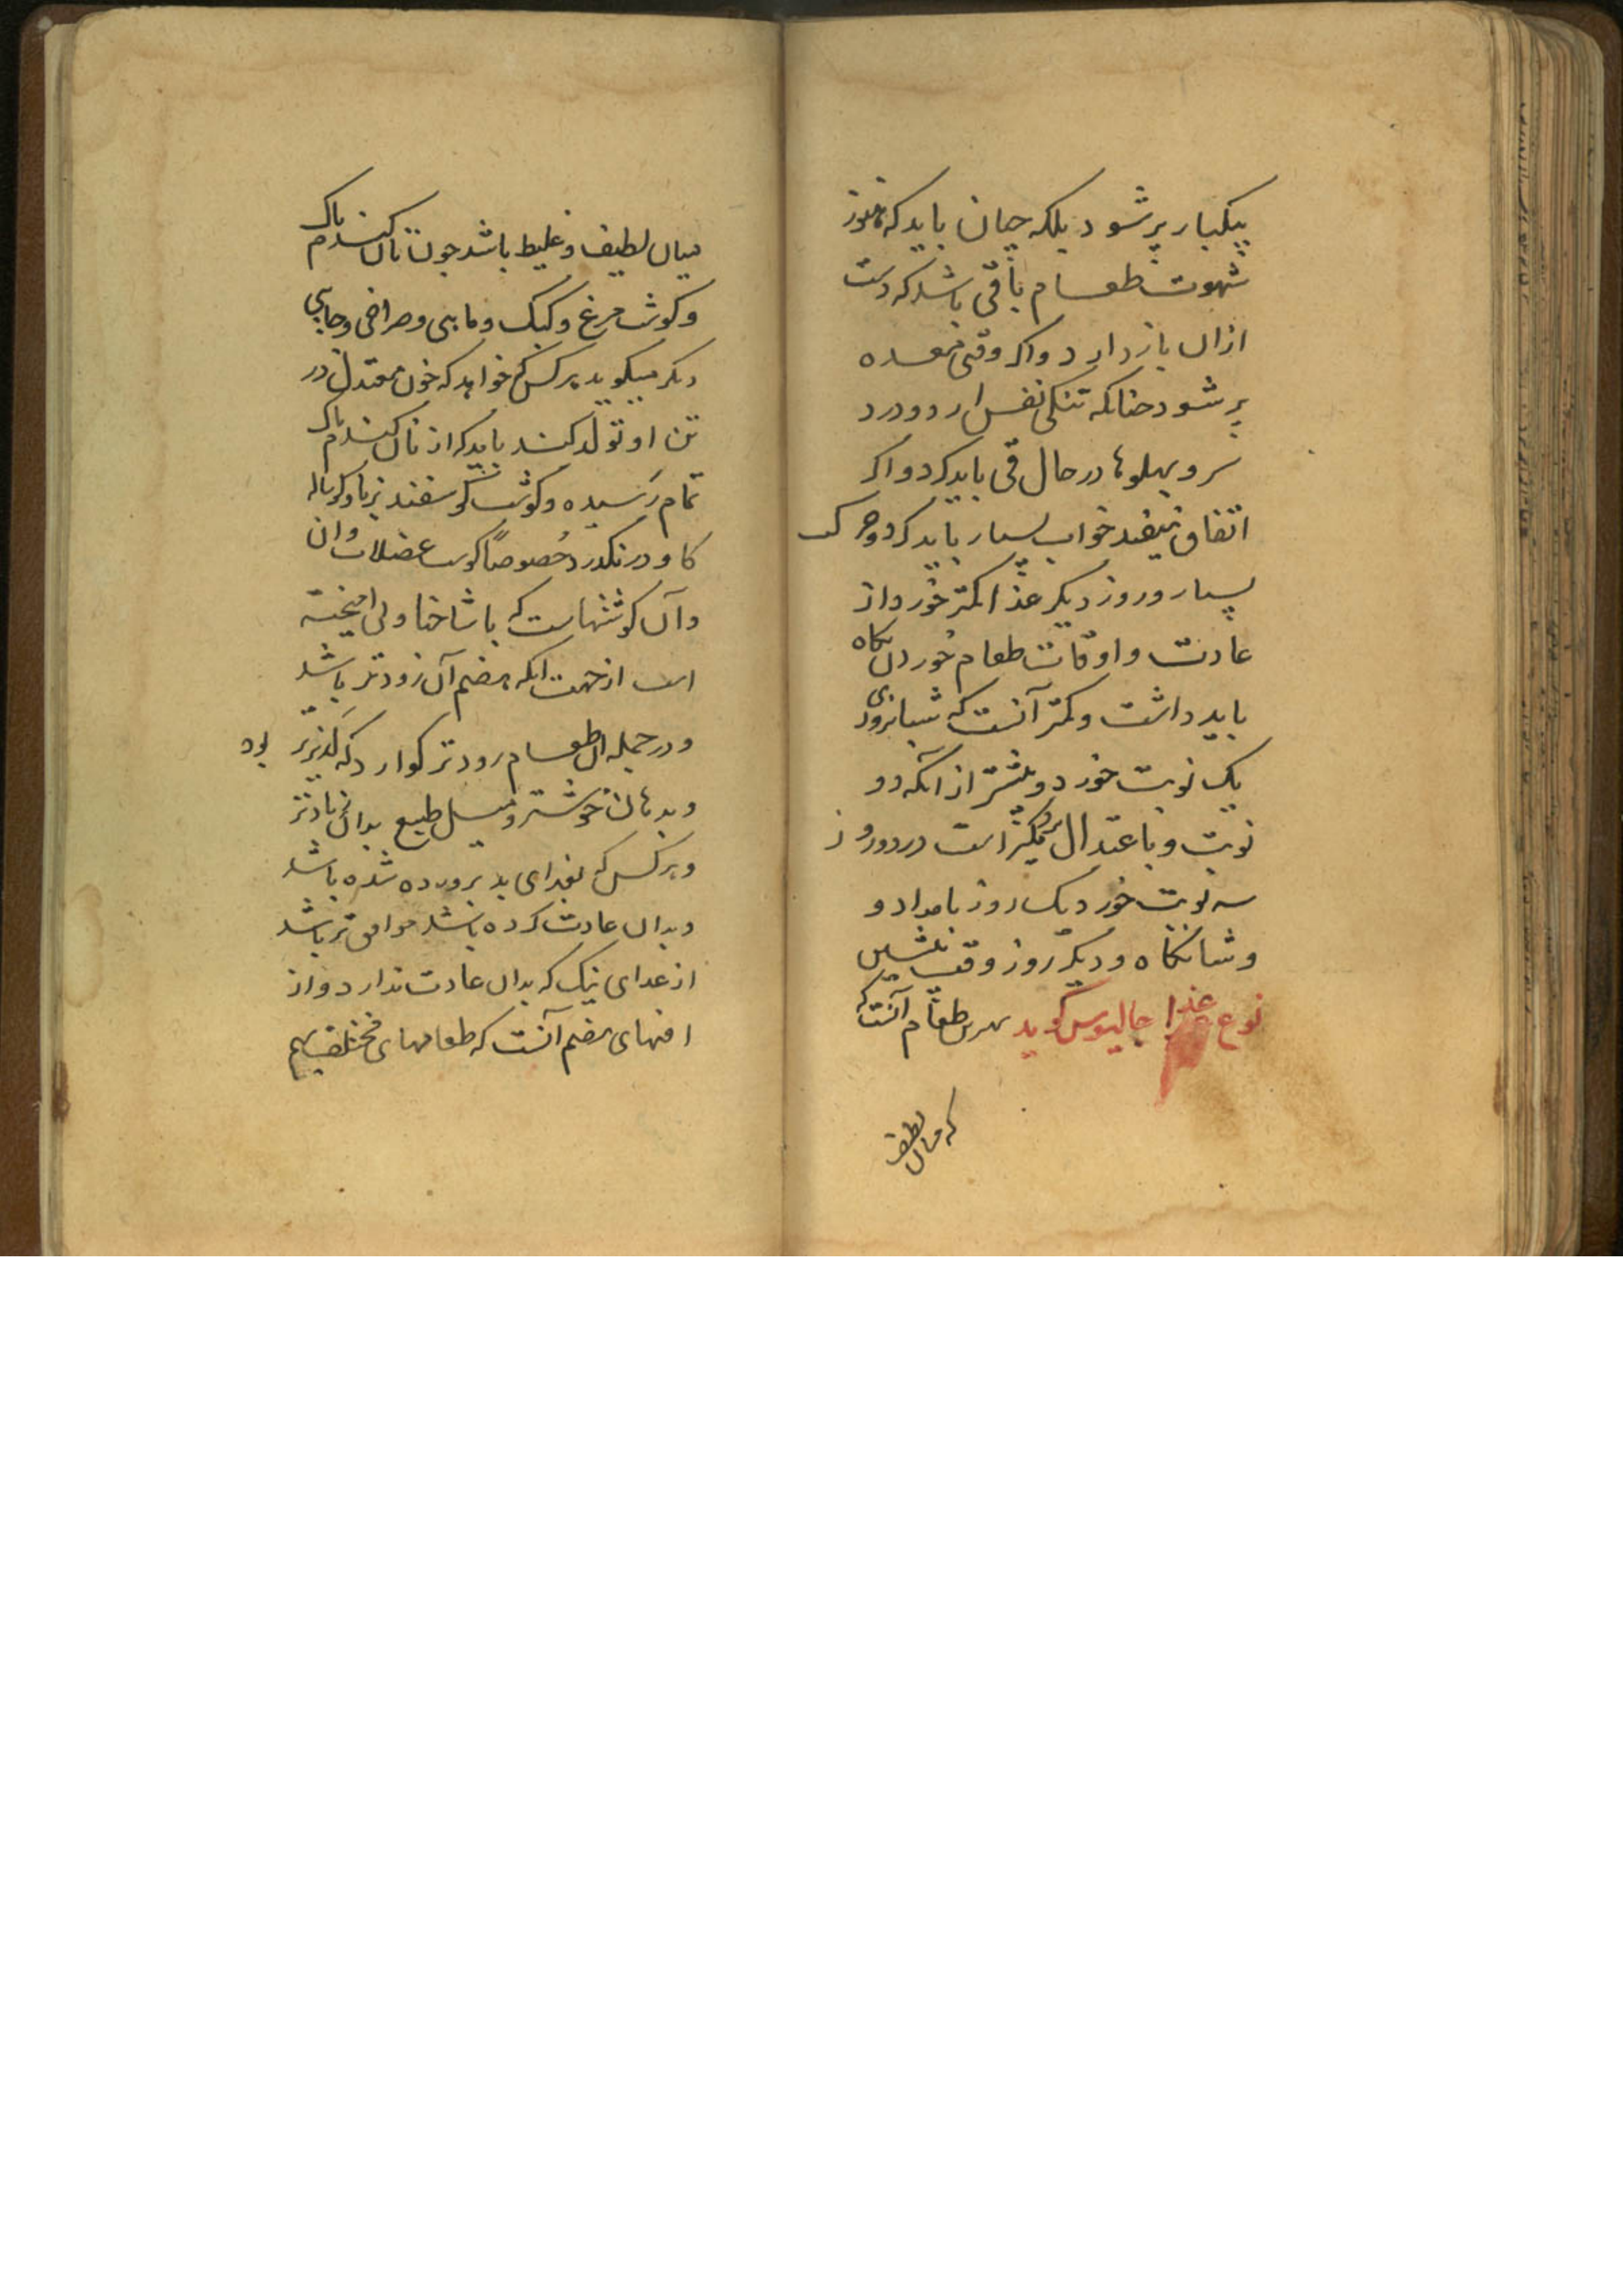 بیکبار پر شود بلکه چنان باید که هنوز
شهوت طعام باقی باشد که دست
ازان باز دارد و اکر وقتی معده
پر شود جنانکه تنکی نفس ارد و درد
سر و پهلوها در حال قی باید کرد و اکر
اتفاق نیفتد خواب بسیار باید کرد و حرکت
بسیار و روز دیکر غذا کمتر خورد و از
عادت و اوقات طعام خوردن نکاه
باید داشت و کمتر آنست که شبانروزی
یک نوبت خورد و بیشتر از آنکه دو
نوبت و باعتدال نزدیکتر است در دو روز
سه نوبت خورد یک روز بامداد و
و شبانکاه و دیکر روز وقت پیشین
نوع غذا جالینوس کوید بهترین طعام آنست که
که میان لطیف
میان لطیف و غلیظ باشد جون نان کندم پاک
و کوشت مرغ و کبک و ماهی و جای
دیکر میکوید هر کس که خواهد که خون معتدل در
تن او تولد کند باید که از نان کندم پاک
تمام رسیده و کوشت کوسفند و کوساله
کاو در نکذرد خصوصا کوشت عضلات وان
وآن کوشتهاست که با شاخها ولی امیخته
است از جهت انکه هضم آن زودتر باشد
و در جمله ان طعام زودتر کوارد که لذیذتر بود
و بدهان خوشتر و میل طبع بدان زیادتر
و هر کس که بغذای بد پرورده شده باشد
و بدان عادت کرده باشد موافق تر باشد
از غذای نیک که بدان عادت ندارد و از
افتهای هضم آنست که طعامهای مختلف بهم